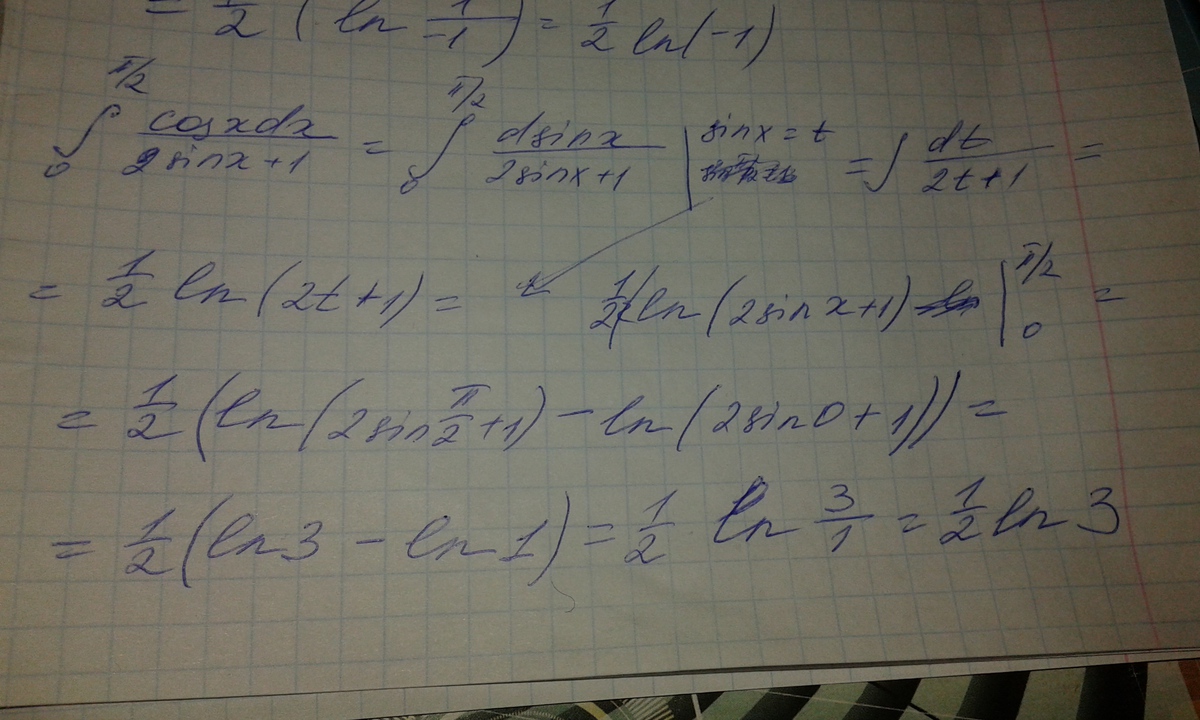 = 1/2 (ln 1/-1) = 1/2 ln(-1)
∫₀^π/2 cosxdx/2sinx+1 = ∫₀^π/2 dsinx/2sinx+1 | sinx = t = ∫ dt/2t+1 =
= 1/2 ln(2t+1) = 1/2 ln(2sinx+1) |₀^π/2 =
= 1/2 (ln(2sin π/2 +1) - ln(2sin0+1)) =
= 1/2 (ln3 - ln1) = 1/2 ln 3/1 = 1/2 ln 3